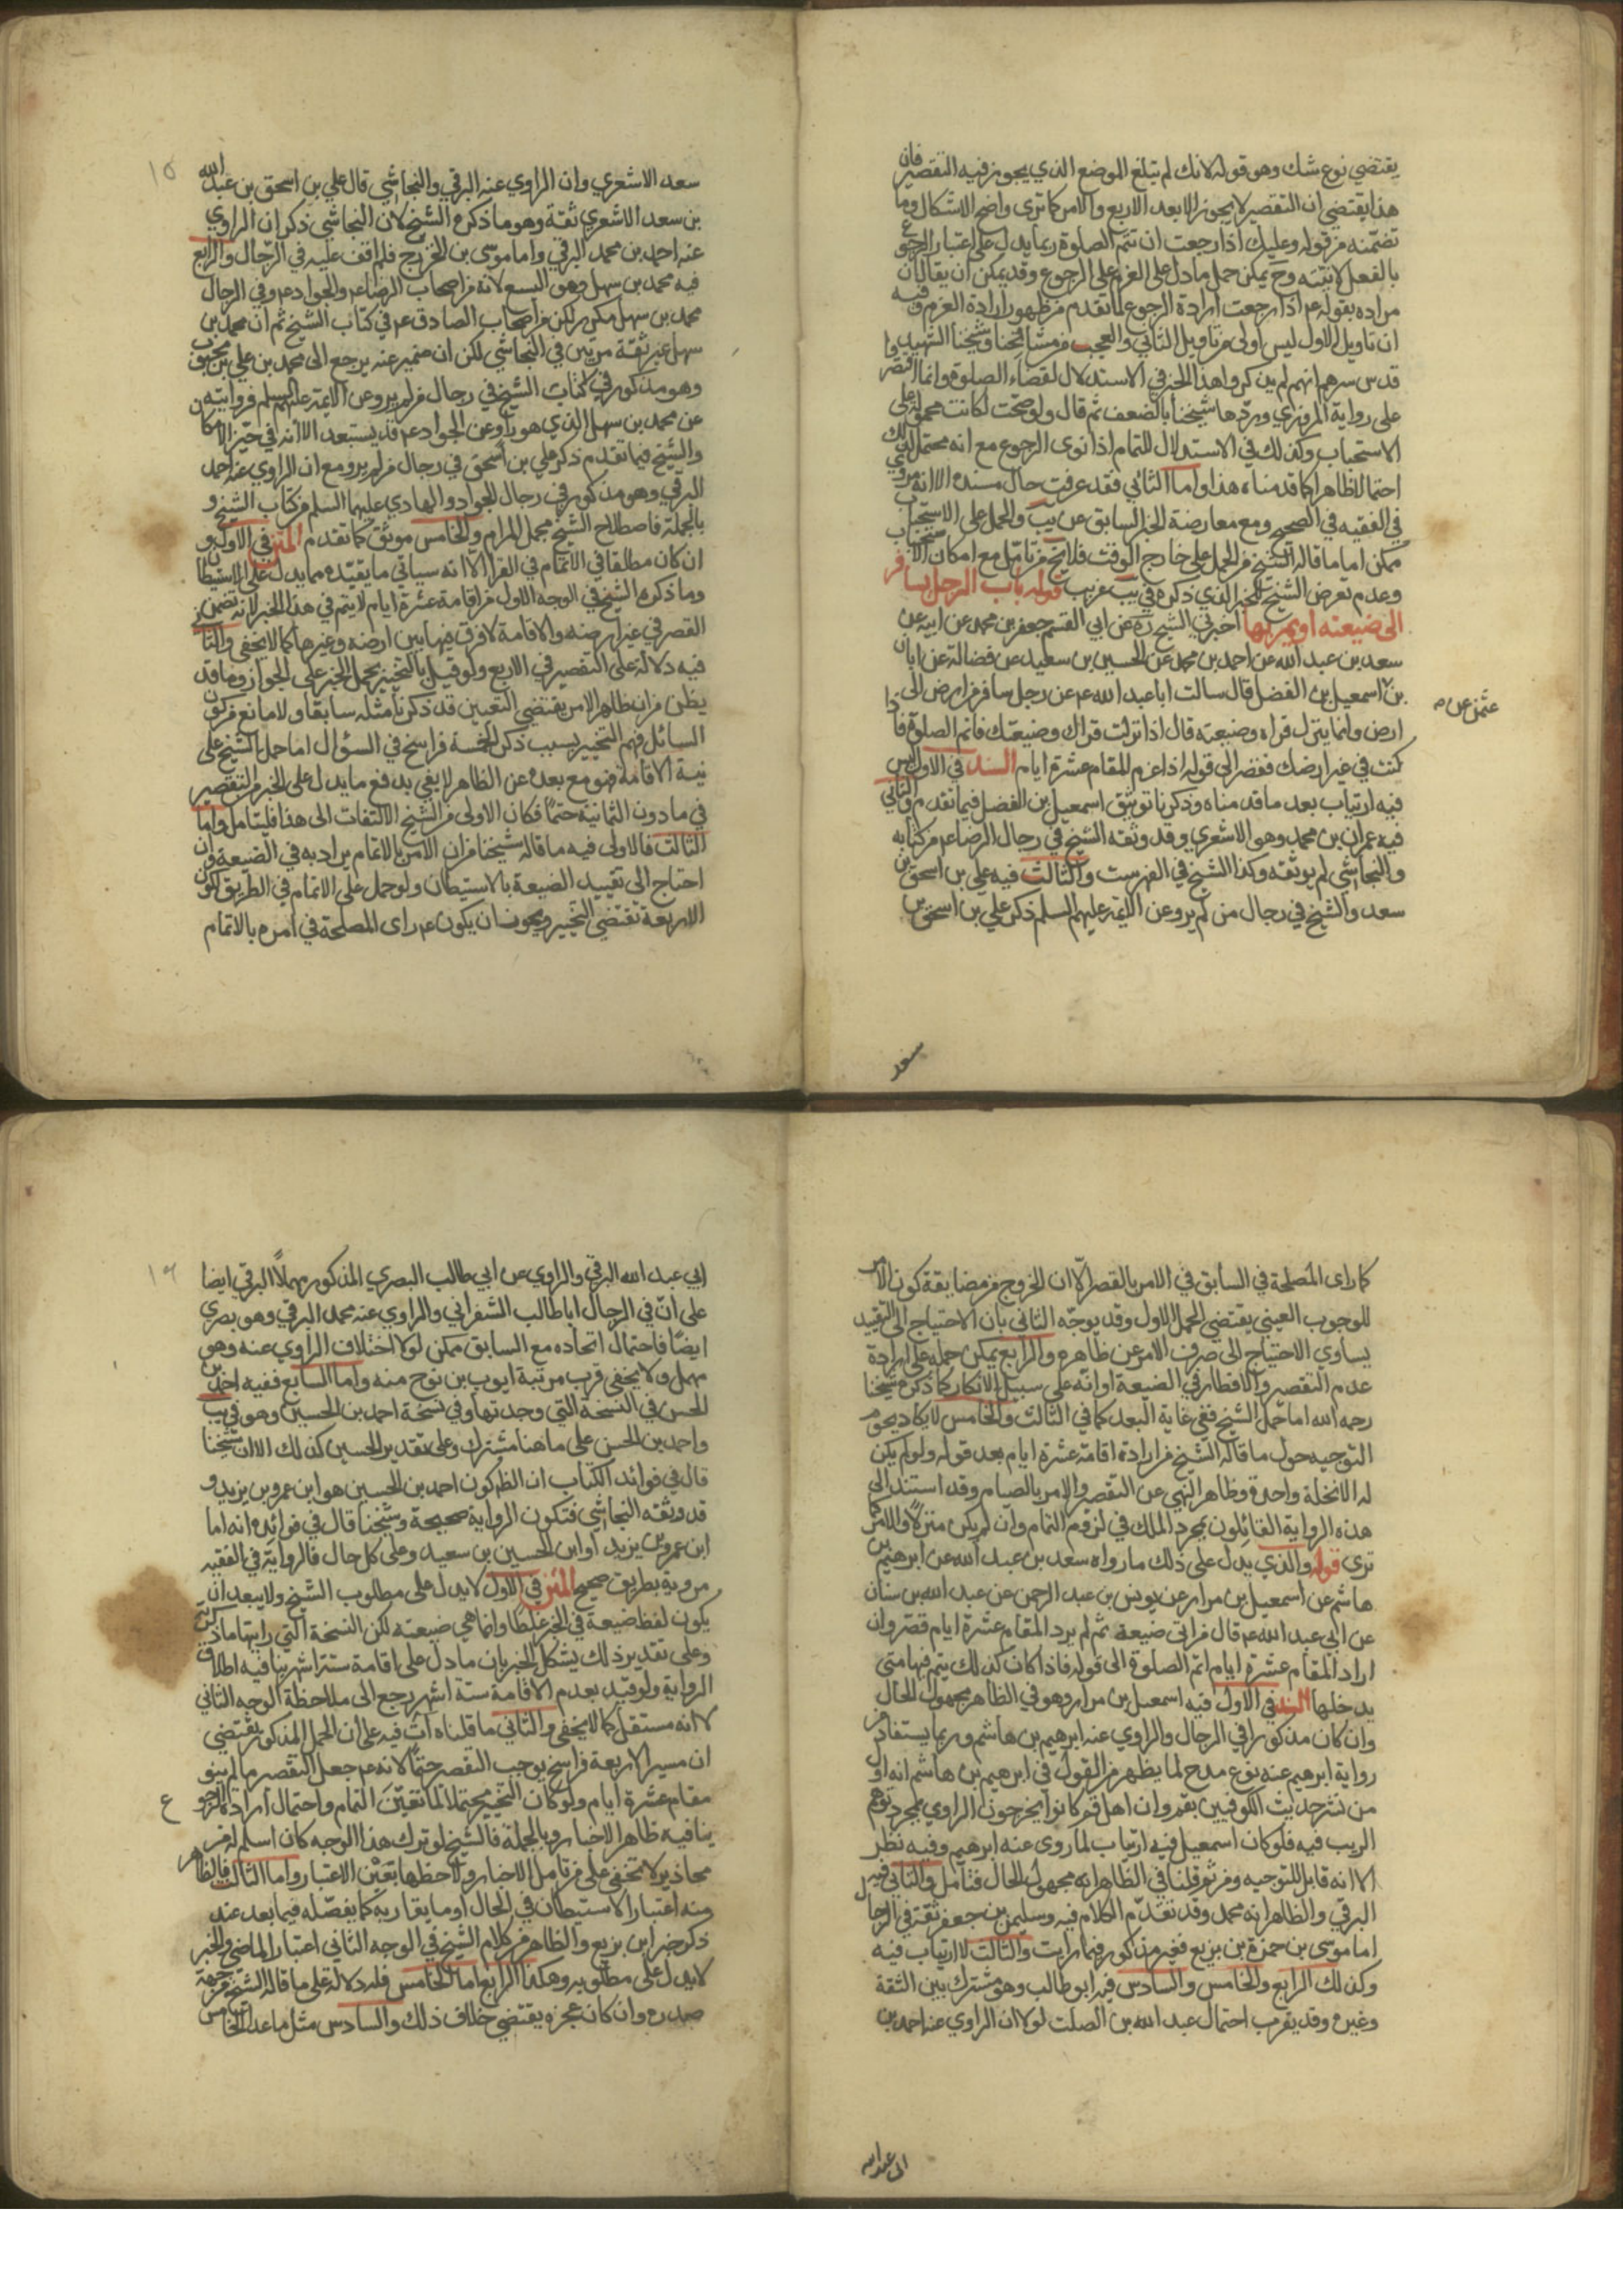 يقتضي نوع شك وهو قوله لانك لم تبلغ الموضع الذي يجوز فيه التقصير فان
هذا يقتضي ان التقصير لا يجوز الا بعد الاربع والامر كما ترى واضح الاشكال وما
تضمنه من قوله وعليك اذا رجعت ان تتم الصلوة ربما يدل على اعتبار الرجوع
بالفعل لا نيته وح يمكن حمل ما دل على العزم على الرجوع وقد يمكن ان يقال بان
مراده بقوله ع اذا رجعت ارادة الرجوع لما تقدم من ظهور ارادة العزم وفيه
ان تاويل الاول ليس اولى من تاويل الثاني والعجب من مشايخنا وشيخنا الشهيد
قدس سرهم انهم لم يذكروا هذا الخبر في الاستدلال لقضاء الصلوة وانما اقتصروا
على رواية المروزي وردها شيخنا بالضعف ثم قال ولو صحت لكانت محمولة على
الاستحباب وكذلك في الاستدلال للتمام اذا نوى الرجوع مع انه محتمل لذلك
احتمالا ظاهرا كما قدمناه هذا واما الثاني فقد عرفت حال مسنده الا انه مروي
في الفقيه في الصحيح ومع معارضة الخبر السابق عن يب والحمل على الاستحباب
ممكن اما ما قاله الشيخ من الحمل على خارج الوقت فلا يخ من تامل مع امكان الاستحباب
وعدم تعرض الشيخ للخبر الذي ذكره في يب غريب قوله باب الرجل يسافر
الى ضيعته او يمر بها اخبرني الشيخ ره عن ابي القسم جعفر بن محمد عن ابيه عن
سعد بن عبد الله عن احمد بن محمد عن الحسين بن سعيد عن فضالة عن ابان
بن اسمعيل بن الفضل قال سالت ابا عبد الله ع عن رجل سافر من ارض الى
عثمن عن
ارض وانما ينزل قراه وضيعته قال اذا نزلت قراك وضيعتك فاتم الصلوة فاذا
كنت في غير ارضك فقصر الى قوله اذا عزم للمقام عشرة ايام السند في الاول ليس
فيه ارتياب بعد ما قدمناه وذكرنا توثيق اسمعيل بن الفضل فيما تقدم والثاني
فيه عمران بن محمد وهو الاشعري وقد وثقه الشيخ في رجال الرضا ع من كتابه
والنجاشي لم يوثقه وكذا الشيخ في الفهرست والثالث فيه علي بن اسحق بن
سعد والشيخ في رجال من لم يرو عن الائمة عليهم السلم ذكر علي بن اسحق بن
سعد
١٥
سعد الاشعري وان الراوي عنه البرقي والنجاشي قال علي بن اسحق بن عبد الله
بن سعد الاشعري ثقة وهو ما ذكره الشيخ لان النجاشي ذكر ان الراوي
عنه احمد بن محمد البرقي واما موسى بن الخزرج فلم اقف عليه في الرجال والرابع
فيه محمد بن سهل وهو اليسع لانه من اصحاب الرضا ع والجواد ع وفي الرجال
محمد بن سهل مكرر لكن من اصحاب الصادق ع في كتاب الشيخ ثم ان محمد بن
سهل غير ثقة مرتين في النجاشي لكن ان ضمير عنه يرجع الى محمد بن علي بن محبوب
وهو مذكور في كتاب الشيخ في رجال من لم يرو عن الائمة عليهم السلم فروايته
عن محمد بن سهل الذي هو راو عن الجواد ع قد يستبعد الا انه في حيز الامكان
والشيخ فيما تقدم ذكر علي بن اسحق في رجال من لم يرو مع ان الراوي عنه احمد
البرقي وهو مذكور في رجال الجواد والهادي عليهما السلم من كتاب الشيخ و
بالجملة فاصطلاح الشيخ مجمل المرام والخامس موثق كما تقدم المتن في الاول و
ان كان مطلقا في الاتمام في القرا الا انه سياتي ما يقيده مما يدل على الاستيطان
وما ذكره الشيخ في الوجه الاول من اقامة عشرة ايام لا يتم في هذا الخبر لانه تضمن
القصر في غير ارضه والاقامة لا فرق فيها بين ارضه وغيرها كما لا يخفى والثاني
فيه دلالة على التقصير في الاربع ولو قيل بالتخيير يحمل الخبر على الجواز وما قد
يظن من ان ظاهر الامر يقتضي التعيين قد ذكرنا مثله سابقا ولا مانع من كون
السائل فهم التخيير بسبب ذكر الخمسة فراسخ في السؤال اما حمل الشيخ على
نية الاقامة فهو مع بعده عن الظاهر لا يفي بدفع ما يدل على الخبر من التقصير
في ما دون الثمانية حتما فكان الاولى من الشيخ الالتفات الى هذا فليتامل واما
الثالث فالاولى فيه ما قاله شيخنا من ان الامر بالاتمام يراد به في الضيعة وان
احتاج الى تقييد الضيعة بالاستيطان ولو حمل على الاتمام في الطريق لكون
الاربعة تقتضي التخيير ويجوز ان يكون ع راى المصلحة في امره بالاتمام
كما راى المصلحة في السابق في الامر بالقصر الا ان الخروج من مضايقة كون الامر
للوجوب العيني يقتضي الحمل الاول وقد يوجه الثاني بان الاحتياج الى التقييد
يساوي الاحتياج الى صرف الامر عن ظاهره والرابع يمكن حمله على ارادة
عدم التقصير والافطار في الضيعة او انه على سبيل الانكار كما ذكره شيخنا
رحمه الله اما حمل الشيخ ففي غاية البعد كما في الثالث والخامس لا يكاد يحوم
التوجيه حول ما قاله الشيخ من ارادة اقامة عشرة ايام بعد قوله ولو لم يكن
له الا نخلة واحدة وظاهر النهي عن التقصير والامر بالصيام وقد استند الى
هذه الرواية القائلون بمجرد الملك في لزوم التمام وان لم يكن منزلا والامر كما
ترى قوله والذي يدل على ذلك ما رواه سعد بن عبد الله عن ابرهيم بن
هاشم عن اسمعيل بن مرار عن يونس بن عبد الرحمن عن عبد الله بن سنان
عن ابي عبد الله ع قال من اتى ضيعة ثم لم يرد المقام عشرة ايام قصر وان
اراد المقام عشرة ايام اتم الصلوة الى قوله فاذا كان كذلك يتم فيها متى
يدخلها السند في الاول فيه اسمعيل بن مرار وهو في الظاهر مجهول الحال
وان كان مذكورا في الرجال والراوي عنه ابرهيم بن هاشم وربما يستفاد من
رواية ابرهيم عنه نوع مدح لما يظهر من القول في ابرهيم بن هاشم انه اول
من نشر حديث الكوفيين بقم وان اهل قم كانوا يخرجون الراوي بمجرد توهم
الريب فيه فلو كان اسمعيل فيه ارتياب لما روى عنه ابرهيم وفيه نظر
الا انه قابل للتوجيه ومن ثم قلنا في الظاهر انه مجهول الحال فتامل والثاني فيه
البرقي والظاهر انه محمد وقد تقدم الكلام فيه وسليمن بن جعفر ثقة في الرجال
اما موسى بن حمزة بن بزيع فغير مذكور فيما رايت والثالث لا ارتياب فيه
وكذلك الرابع والخامس والسادس فيه ابو طالب وهو مشترك بين الثقة
وغيره وقد يقرب احتمال عبد الله بن الصلت لولا ان الراوي عنه احمد بن
ابي عبد الله
١٦
ابي عبد الله البرقي والراوي عن ابي طالب البصري المذكور مهملا البرقي ايضا
على ان في الرجال ابا طالب الشعراني والراوي عنه محمد البرقي وهو بصري
ايضا فاحتمال اتحاده مع السابق ممكن لولا اختلاف الراوي عنه وهو
مهمل ولا يخفى قرب مرتبة ايوب بن نوح منه واما السابع ففيه احمد بن
الحسن في النسخة التي وجدتها وفي نسخة احمد بن الحسين وهو في يب
واحمد بن الحسن على ما هنا مشترك وعلى تقدير الحسين كذلك الا ان شيخنا
قال في فوائد الكتاب ان الظ كون احمد بن الحسين هو ابن عمر بن يزيد و
قد وثقه النجاشي فتكون الرواية صحيحة وشيخنا قال في فوائده انه اما
ابن عمر بن يزيد او ابن الحسين بن سعيد وعلى كل حال فالرواية في الفقيه
مروية بطريق صحيح المتن في الاول لا يدل على مطلوب الشيخ ولا يبعد ان
يكون لفظ ضيعة في الخبر غلطا وانما هي ضيعته لكن النسخة التي رايتها ما ذكرته
وعلى تقدير ذلك يشكل الخبر بان ما دل على اقامة ستة اشهر ينافيه اطلاق
الرواية ولو قيد بعدم الاقامة ستة اشهر رجع الى ملاحظة الوجه الثاني
لا انه مستقل كما لا يخفى والثاني ما قلناه ات فيه على ان الحمل المذكور يقتضي
ان مسير الاربعة فراسخ يوجب التقصير حتما لانه ع جعل التقصير ما لم ينو
مقام عشرة ايام ولو كان التخيير محتملا لما تعين التمام واحتمال ارادة الرجوع
ينافيه ظاهر الاخبار وبالجملة فالشيخ لو ترك هذا الوجه كان اسلم له من
محاذير لا تخفى على من تامل الاخبار ولاحظها بعين الاعتبار واما الثالث فالظاهر
منه اعتبار الاستيطان في الحال او ما يقاربه كما يفصله فيما بعد عند
ذكر خبر ابن بزيع والظاهر من كلام الشيخ في الوجه الثاني اعتبار الماضي والخبر
لا يدل على مطلوبه وهكذا الرابع اما الخامس فله دلالة على ما قاله الشيخ من جهة
صدره وان كان عجزه يقتضي خلاف ذلك والسادس مثل ما عدا الخامس